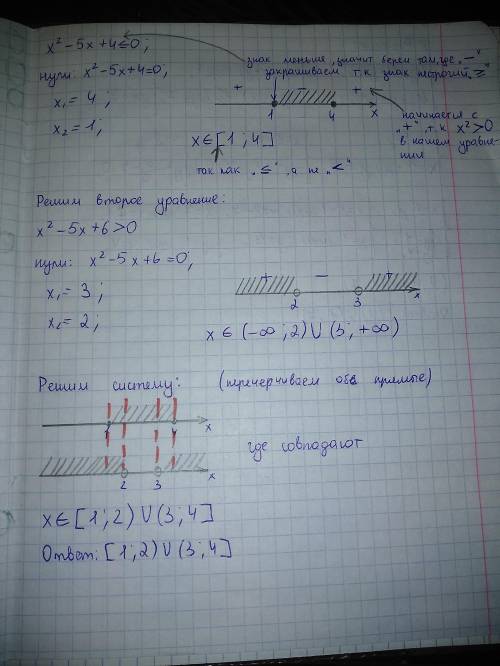 x² - 5x + 4 ≤ 0;
знак меньше, значит берем там, где „—"
закрашиваем т.к. знак нестрогий „≥"
нули: x² - 5x + 4 = 0;
x₁ = 4;
x₂ = 1;
+ − +
1 4 x
начинается с
„+", т.к. x² > 0
в нашем уравне-
нии
x ∈ [1; 4]
так как „≤", а не „<"
Решим второе уравнение:
x² - 5x + 6 > 0
нули: x² - 5x + 6 = 0;
x₁ = 3;
x₂ = 2;
+ − +
2 3 x
x ∈ (-∞; 2) ∪ (3; +∞)
Решим систему: (перечерчиваем обе прямые)
1 4 x
где совпадают
2 3 x
x ∈ [1; 2) ∪ (3; 4]
Ответ: [1; 2) ∪ (3; 4]